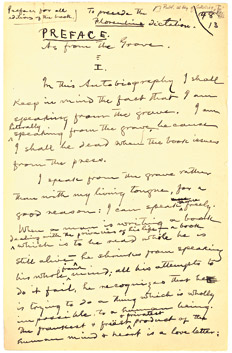 Preface for all
editions of this book
To precede the
Florentine Dictation.
48
13
PREFACE.
As from the Grave.
I.
In this Autobiography I shall
keep in mind the fact that I am
speaking from the grave. I am
literally
speaking from the grave, because
I shall be dead when the book issues
from the press.
I speak from the grave rather
than with my living tongue, for a
good reason: I can speak freely.
When a man is writing a book
dealing with the privacies of his life — a book
which is to be read while he is
still alive — he shrinks from speaking
his whole frank mind; all his attempts to
do it fail, he recognizes that he
is trying to do a thing which is wholly
impossible to a human being.
The frankest & freest product of the
human mind & heart is a love letter;